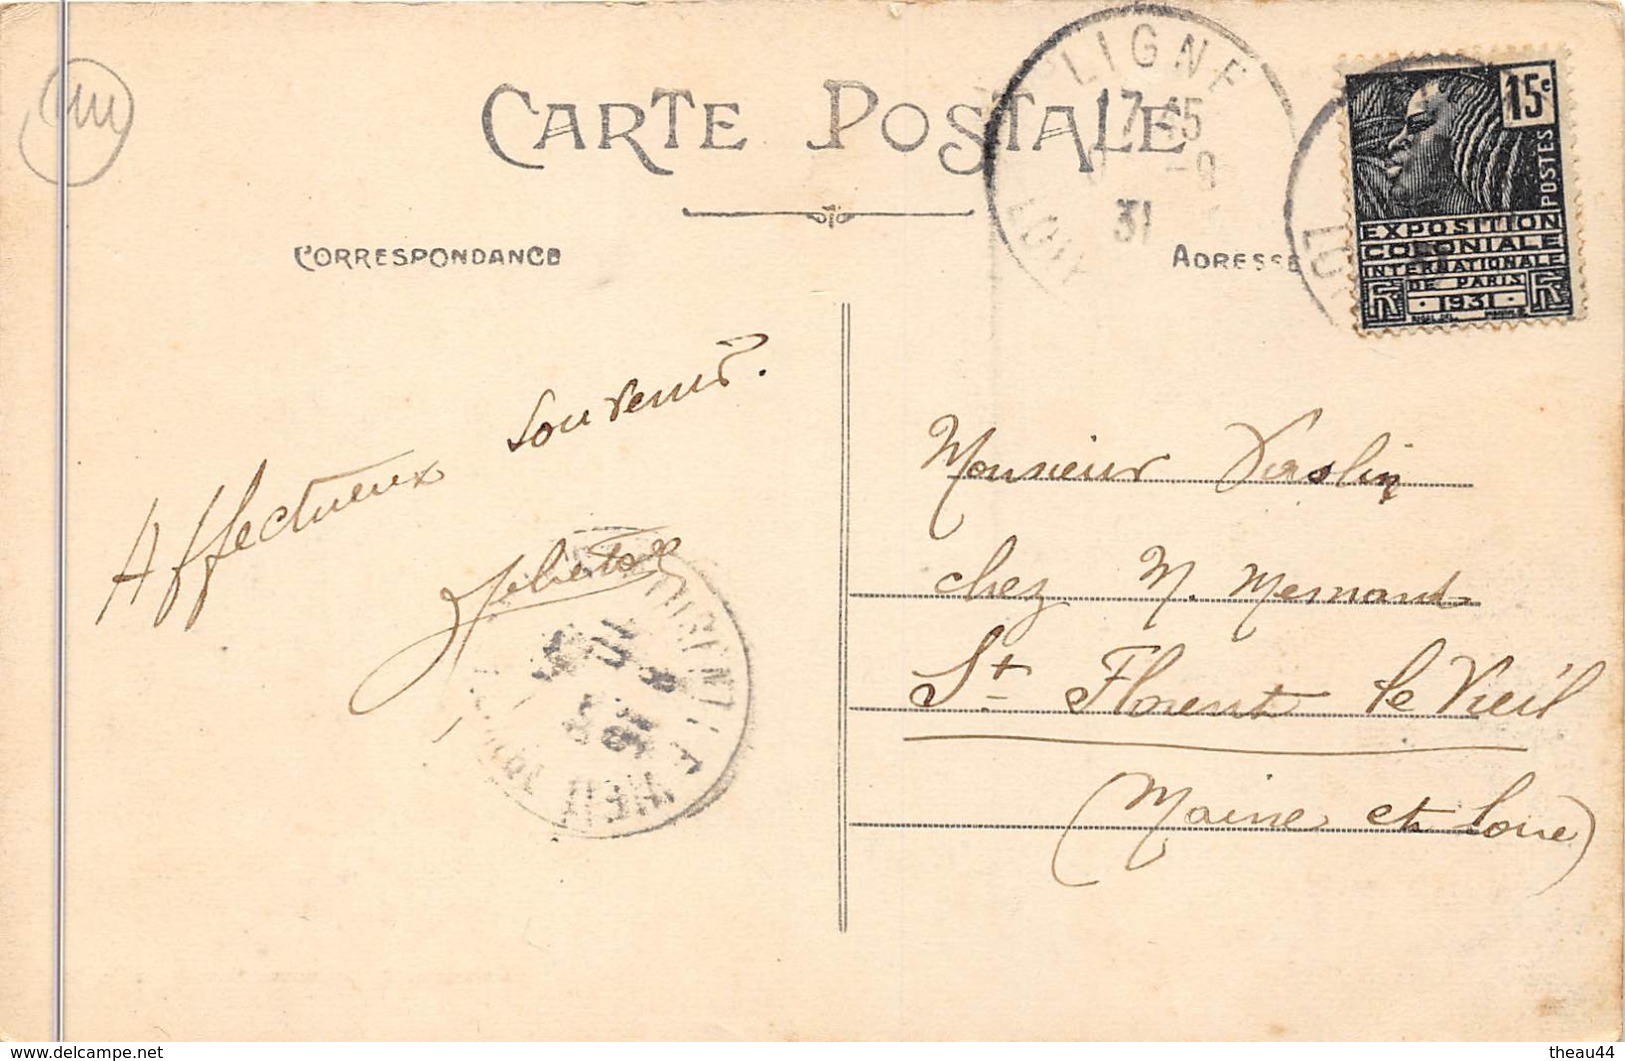 CARTE POSTALE
CORRESPONDANCE
ADRESSE
LIGNE
17 45
31
15c
POSTES
EXPOSITION
COLONIALE
INTERNATIONALE
DE PARIS
1931
RF RF
Affectueux souvenir.
Monsieur
chez M.
St Florent le Vieil
(Maine et Loire)
www.delcampe.net
theau44